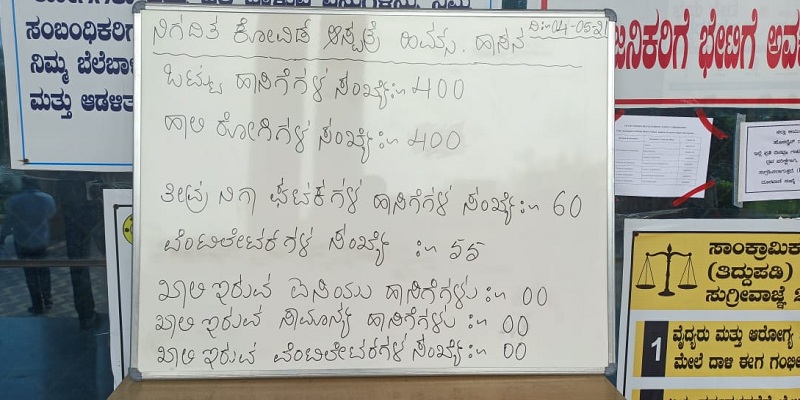 ಸಂಬಂಧಿಕರಿಗ
ನಿಮ್ಮ
ಮತ್ತು ಆಡಳಿತ
ನಿಗದಿತ ಕೋವಿಡ್ ಆಸ್ಪತ್ರೆ ಹಿಮ್ಸ್. ಹಾಸನ ದಿ:-04-05-21
ಒಟ್ಟು ಹಾಸಿಗೆಗಳ ಸಂಖ್ಯೆ:- 400
ಹಾಲಿ ರೋಗಿಗಳ ಸಂಖ್ಯೆ:- 400
ತೀವ್ರ ನಿಗಾ ಘಟಕಗಳ ಹಾಸಿಗೆಗಳ ಸಂಖ್ಯೆ:- 60
ವೆಂಟಿಲೇಟರಗಳ ಸಂಖ್ಯೆ :- 55
ಖಾಲಿ ಇರುವ ಐಸಿಯು ಹಾಸಿಗೆಗಳು :- 00
ಖಾಲಿ ಇರುವ ಸಾಮಾನ್ಯ ಹಾಸಿಗೆಗಳು :- 00
ಖಾಲಿ ಇರುವ ವೆಂಟಿಲೇಟರಗಳ ಸಂಖ್ಯೆ:- 00
ಜನಿಕರಿಗೆ ಭೇಟಿಗೆ ಅವ
ಸಾಂಕ್ರಾಮಿಕ
(ತಿದ್ದುಪಡಿ)
ಸುಗ್ರೀವಾಜ್ಞೆ 2
1 ವೈದ್ಯರು ಮತ್ತು ಆರೋಗ್ಯ
ಮೇಲೆ ದಾಳಿ ಈಗ ಗಂಭೀ